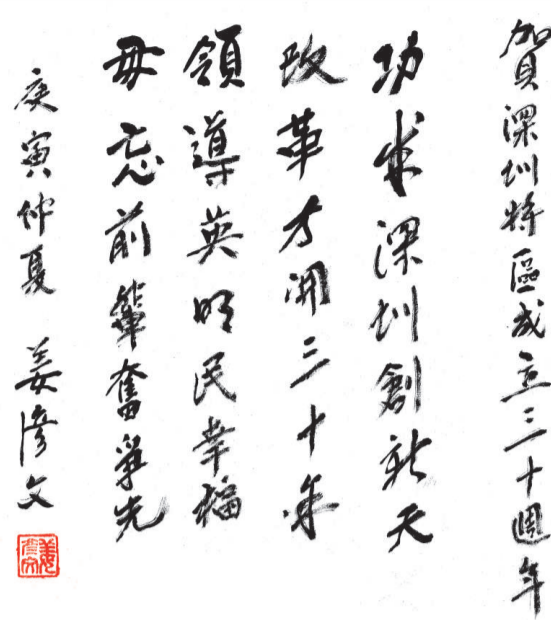 賀深圳特區成立三十週年
功成深圳創新天
改革方開三十年
領導英明民幸福
毋忘前輩奮爭先
庚寅仲夏 姜彦文